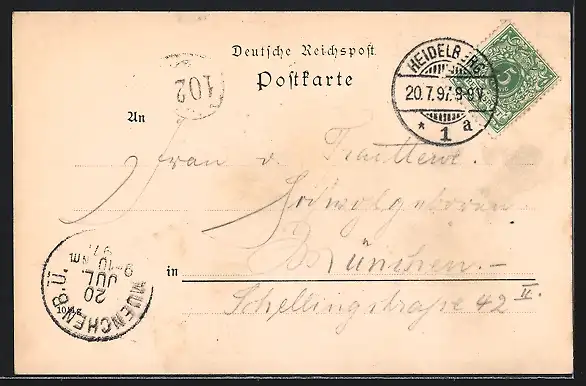 Deutsche Reichspost
Postkarte
102
HEIDELBERG
20.7.97. 8-9V.
* 1 a
5
An
Frau v.
Hochwolgeboren
in
München.-
Schellingstraße 42 II.
MUENCHEN B.Ü.
20
JUL.
9-10 Nm
97.